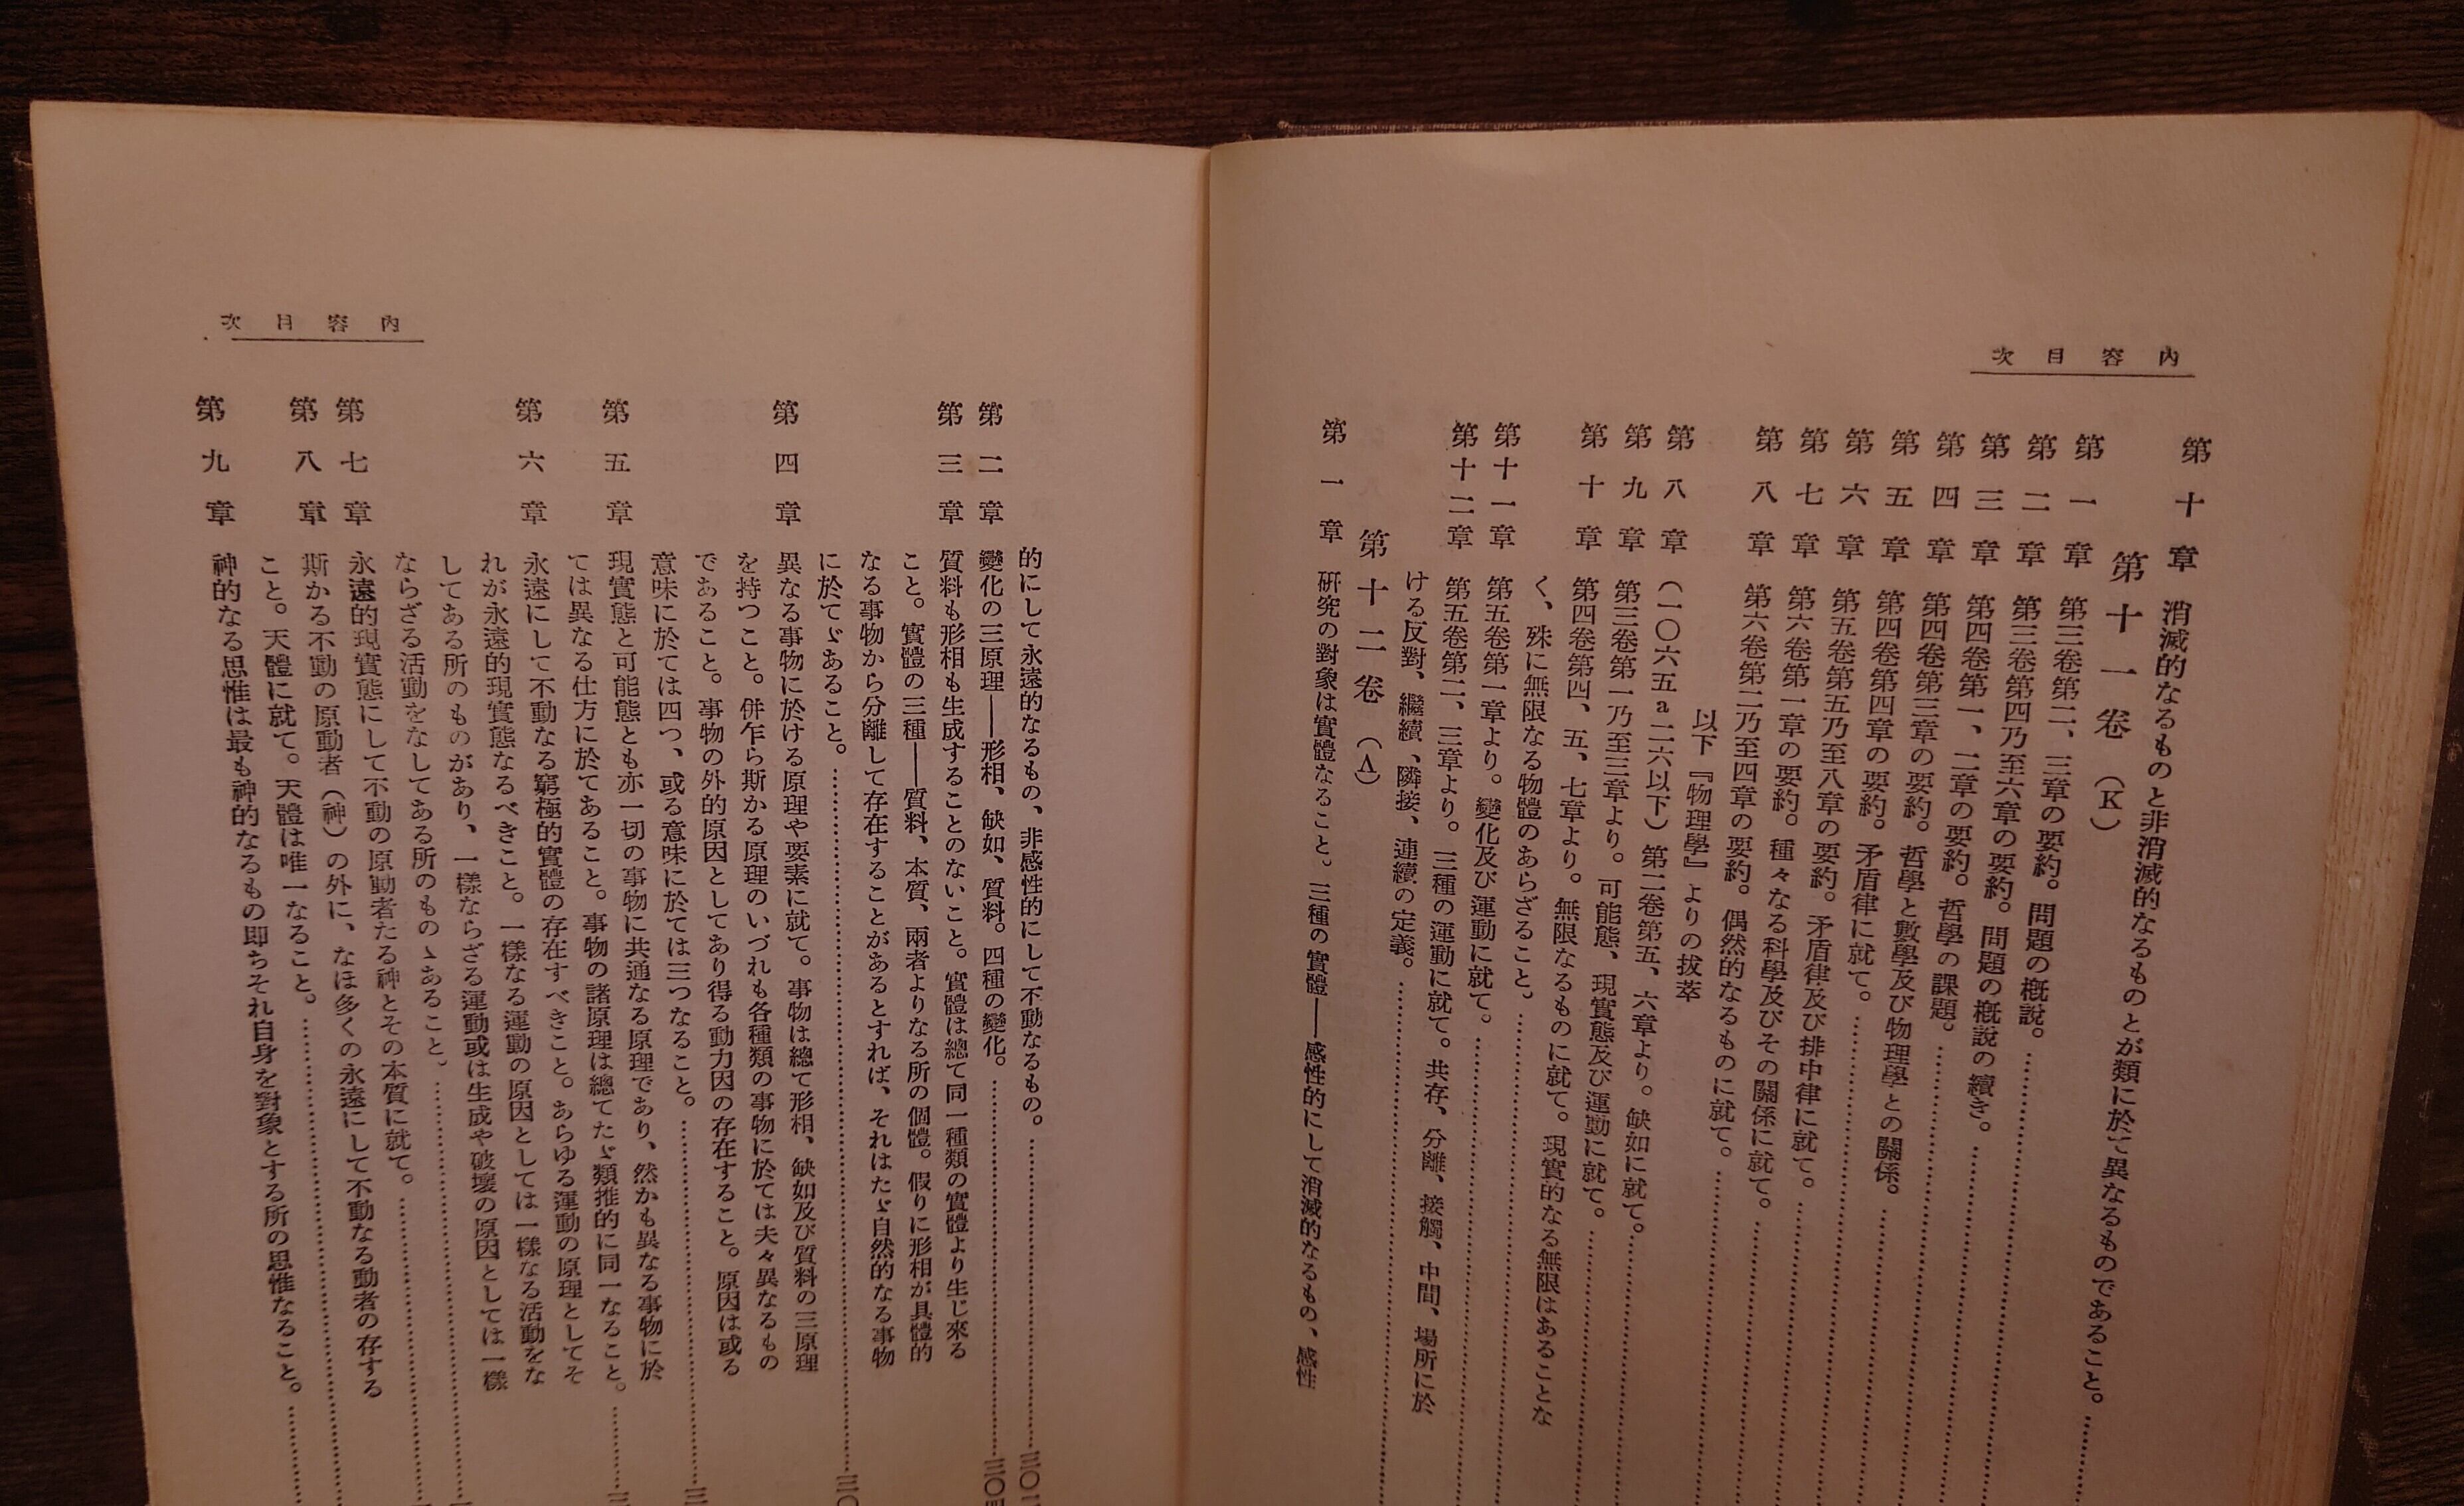 內容目次
第十章 消滅的なるものと非消滅的なるものとが類に於て異なるものであること。
第十一卷（K）
第一章 第三卷第二、三章の要約。問題の槪說。
第二章 第三卷第四乃至六章の要約。問題の槪說の續き。
第三章 第四卷第一、二章の要約。哲學の課題。
第四章 第四卷第三章の要約。哲學と數學及び物理學との關係。
第五章 第四卷第四章の要約。矛盾律に就て。
第六章 第五卷第五乃至八章の要約。矛盾律及び排中律に就て。
第七章 第六卷第一章の要約。種々なる科學及びその關係に就て。
第八章 第六卷第二乃至四章の要約。偶然的なるものに就て。
以下『物理學』よりの拔萃
第八章 （一〇六五a二六以下）第二卷第五、六章より。缺如に就て。
第九章 第三卷第一乃至三章より。可能態、現實態及び運動に就て。
第十章 第四卷第四、五、七章より。無限なるものに就て。現實的なる無限はあることな
く、殊に無限なる物體のあらざること。
第十一章 第五卷第一章より。變化及び運動に就て。
第十二章 第五卷第二、三章より。三種の運動に就て。共存、分離、接觸、中間、場所に於
ける反對、繼續、隣接、連續の定義。
第十二卷（Λ）
第一章 硏究の對象は實體なること。三種の實體——感性的にして消滅的なるもの、感性
內容目次
的にして永遠的なるもの、非感性的にして不動なるもの。
第二章 變化の三原理——形相、缺如、質料。四種の變化。
第三章 質料も形相も生成することのないこと。實體は總て同一種類の實體より生じ來る
こと。實體の三種——質料、本質、兩者よりなる所の個體。假りに形相が具體的
なる事物から分離して存在することがあるとすれば、それはたゞ自然的なる事物
に於てゞあること。
第四章 異なる事物に於ける原理や要素に就て。事物は總て形相、缺如及び質料の三原理
を持つこと。併乍ら斯かる原理のいづれも各種類の事物に於ては夫々異なるもの
であること。事物の外的原因としてあり得る動力因の存在すること。原因は或る
意味に於ては四つ、或る意味に於ては三つなること。
第五章 現實態と可能態とも亦一切の事物に共通なる原理であり、然かも異なる事物に於
ては異なる仕方に於てあること。事物の諸原理は總てたゞ類推的に同一なること。
第六章 永遠にして不動なる窮極的實體の存在すべきこと。あらゆる運動の原理としてそ
れが永遠的現實態なるべきこと。一樣なる運動の原因としては一樣なる活動をな
してある所のものがあり、一樣ならざる運動或は生成や破壞の原因としては一樣
ならざる活動をなしてある所のものゝあること。
第七章 永遠的現實態にして不動の原動者たる神とその本質に就て。
第八章 斯かる不動の原動者（神）の外に、なほ多くの永遠にして不動なる動者の存する
こと。天體に就て。天體は唯一なること。
第九章 神的なる思惟は最も神的なるもの卽ちそれ自身を對象とする所の思惟なること。